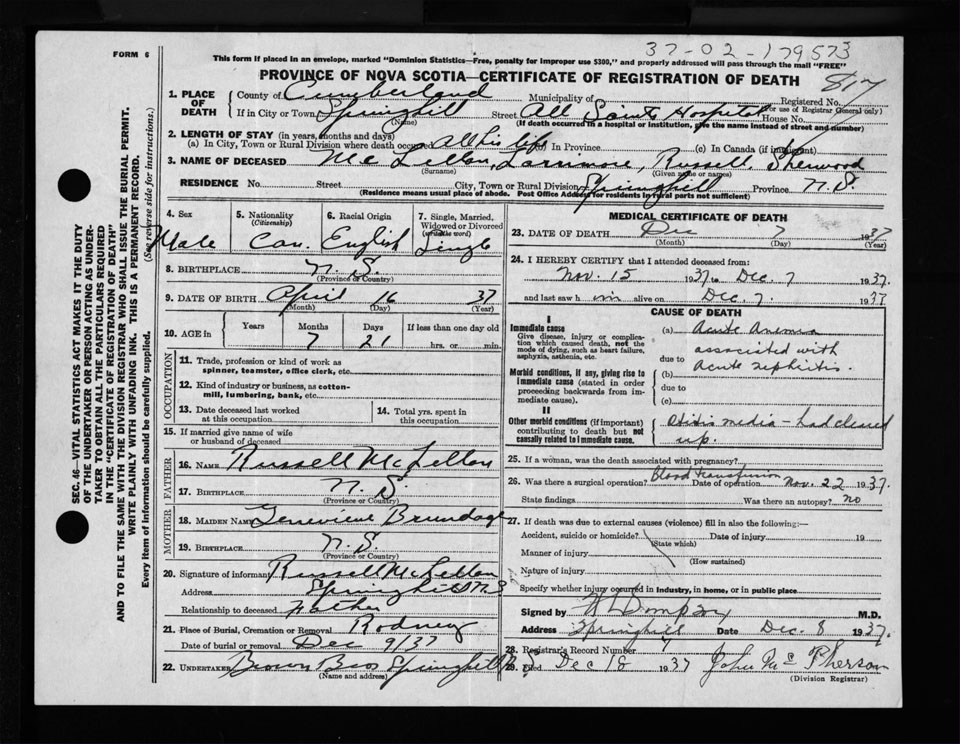 37-02-179573
FORM 6
This form if placed in an envelope, marked "Dominion Statistics—Free, penalty for improper use $300," and properly addressed will pass through the mail "FREE"
PROVINCE OF NOVA SCOTIA—CERTIFICATE OF REGISTRATION OF DEATH
817
1. PLACE OF DEATH
County of Cumberland Municipality of Registered No.
(For use of Registrar General only)
If in City or Town Springhill Street All Saints Hospital House No.
(Name) (If death occurred in a hospital or institution, give the name instead of street and number)
2. LENGTH OF STAY (in years, months and days)
(a) In City, Town or Rural Division where death occurred All his life (b) In Province (c) In Canada (if immigrant)
3. NAME OF DECEASED McLellan, Larrimore, Russell Sherwood
(Surname) (Given name or names)
RESIDENCE No. Street City, Town or Rural Division Springhill Province N.S.
(Residence means usual place of abode. Post Office Address for residents in rural parts not sufficient)
4. Sex Male
5. Nationality (Citizenship) Can.
6. Racial Origin English
7. Single, Married, Widowed or Divorced (write the word) Single
8. BIRTHPLACE N.S.
(Province or Country)
9. DATE OF BIRTH April 16 37
(Month) (Day) (Year)
10. AGE in Years Months Days If less than one day old
7 21 hrs. or min.
OCCUPATION
11. Trade, profession or kind of work as spinner, teamster, office clerk, etc.
12. Kind of industry or business, as cotton-mill, lumbering, bank, etc.
13. Date deceased last worked at this occupation
14. Total yrs. spent in this occupation
15. If married give name of wife or husband of deceased
FATHER
16. NAME Russell McLellan
17. BIRTHPLACE N.S.
(Province or Country)
MOTHER
18. MAIDEN NAME Genevieve Brundage
19. BIRTHPLACE N.S.
(Province or Country)
20. Signature of informant Russell McLellan
Address Springhill N.S
Relationship to deceased Father
21. Place of Burial, Cremation or Removal Rodney
Date of burial or removal Dec 9/37
22. UNDERTAKER Brown Bros Springhill N.S.
(Name and address)
MEDICAL CERTIFICATE OF DEATH
23. DATE OF DEATH Dec 7 1937
(Month) (Day) (Year)
24. I HEREBY CERTIFY that I attended deceased from:
Nov. 15 1937 to Dec. 7 1937.
and last saw him alive on Dec. 7. 1937
CAUSE OF DEATH
I
Immediate cause
Give disease, injury or complication which caused death, not the mode of dying, such as heart failure, asphyxia, asthenia, etc.
(a) Acute Anemia
associated with
due to
(b) acute nephritis.
Morbid conditions, if any, giving rise to Immediate cause (stated in order proceeding backwards from immediate cause).
due to
(c)
II
Other morbid conditions (if important) contributing to death but not causally related to immediate cause.
Otitis media — had cleared up.
25. If a woman, was the death associated with pregnancy?
26. Was there a surgical operation? Blood transfusion Date of operation Nov. 22 1937.
State findings Was there an autopsy? no
27. If death was due to external causes (violence) fill in also the following:—
Accident, suicide or homicide? Date of injury 19
(State which)
Manner of injury
(How sustained)
Nature of injury
Specify whether injury occurred in industry, in home, or in public place
Signed by M.D.
Address Springhill Date Dec. 8 1937.
28. Registrar's Record Number
29. Filed Dec 18 1937 John McPherson
(Division Registrar)
SEC. 46—VITAL STATISTICS ACT MAKES IT THE DUTY
OF THE UNDERTAKER OR PERSON ACTING AS UNDER-
TAKER TO OBTAIN ALL THE PARTICULARS REQUIRED
IN THE "CERTIFICATE OF REGISTRATION OF DEATH"
AND TO FILE THE SAME WITH THE DIVISION REGISTRAR WHO SHALL ISSUE THE BURIAL PERMIT.
WRITE PLAINLY WITH UNFADING INK. THIS IS A PERMANENT RECORD.
Every item of information should be carefully supplied. (See reverse side for instructions.)